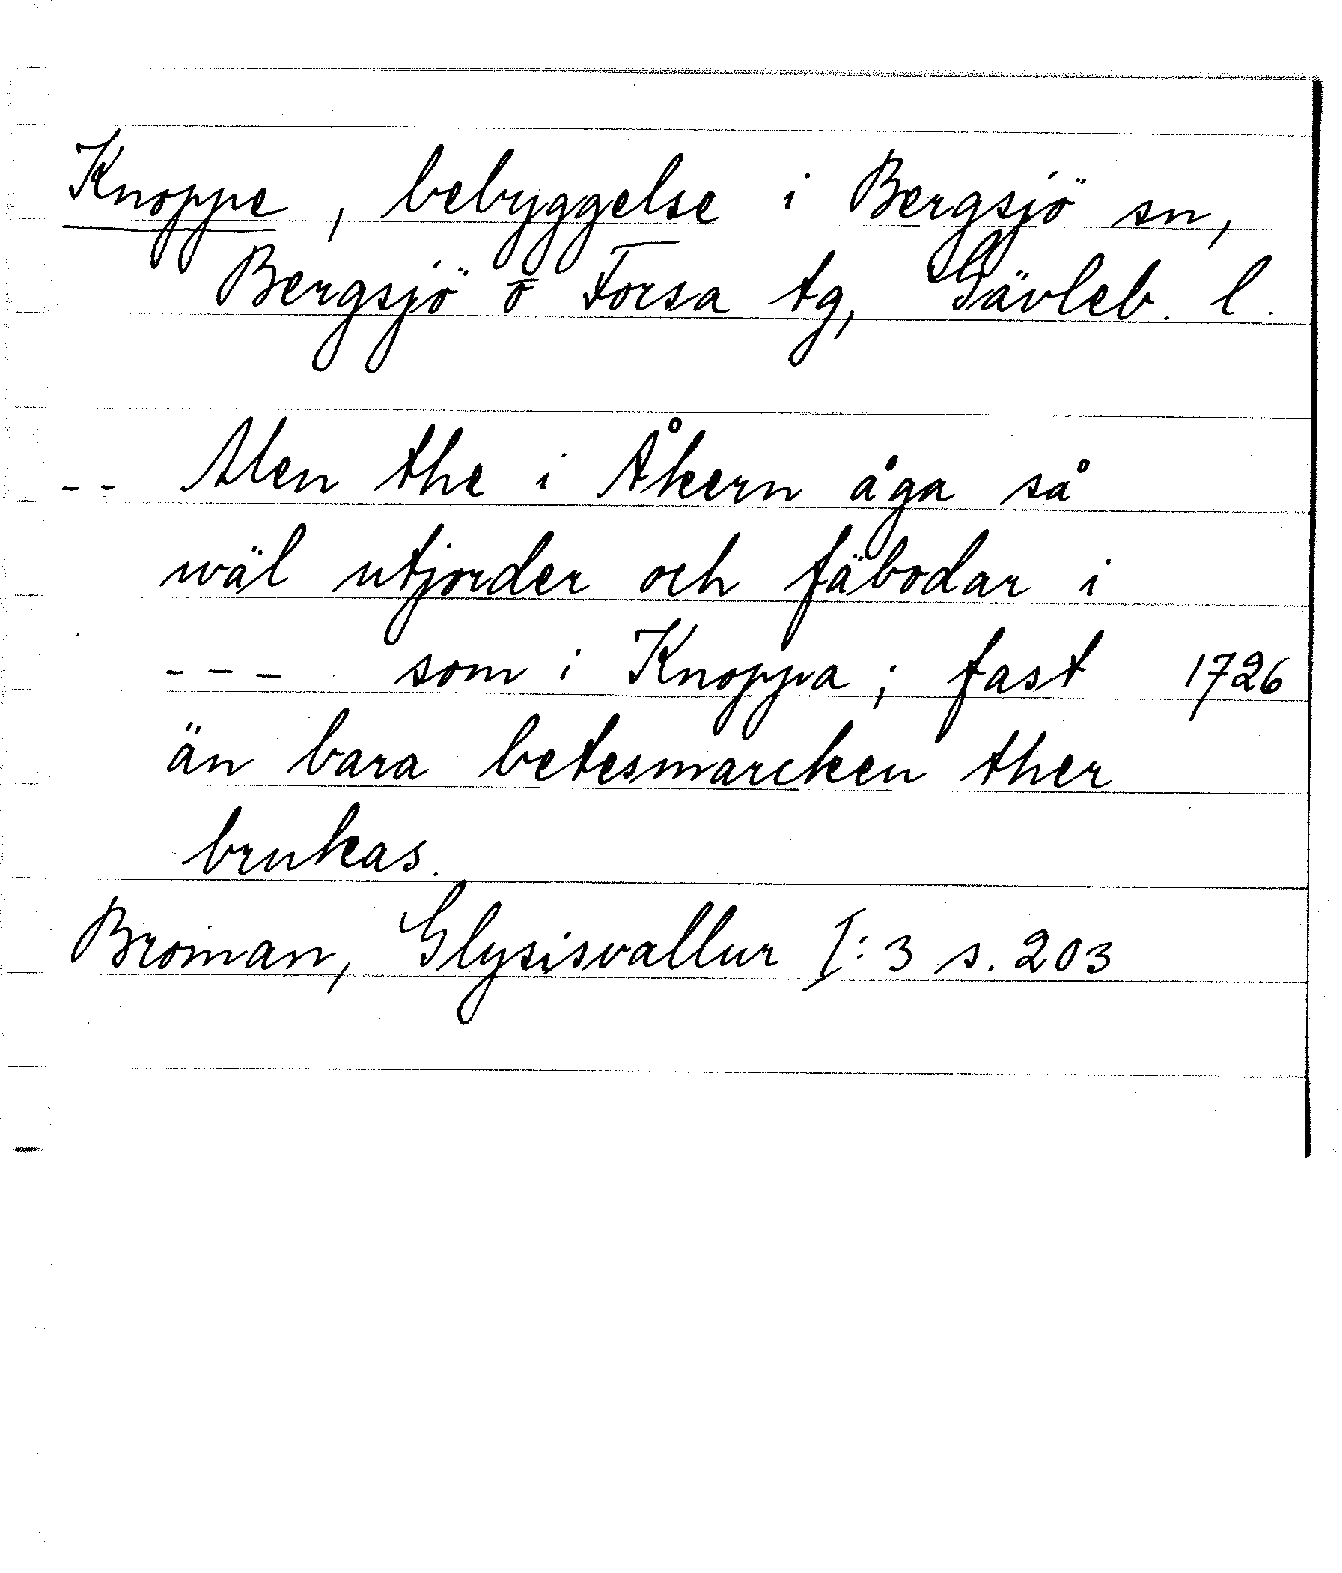 Knoppe, bebyggelse i Bergsjö sn,
Bergsjö o Forsa tg, Gävleb. l.
-- Men the i Åkern åga så
wäl utjorder och fäbodar i
--- som i Knoppa; fast 1726
än bara betesmarcken ther
brukas.
Broman, Glysisvallur I:3 s. 203